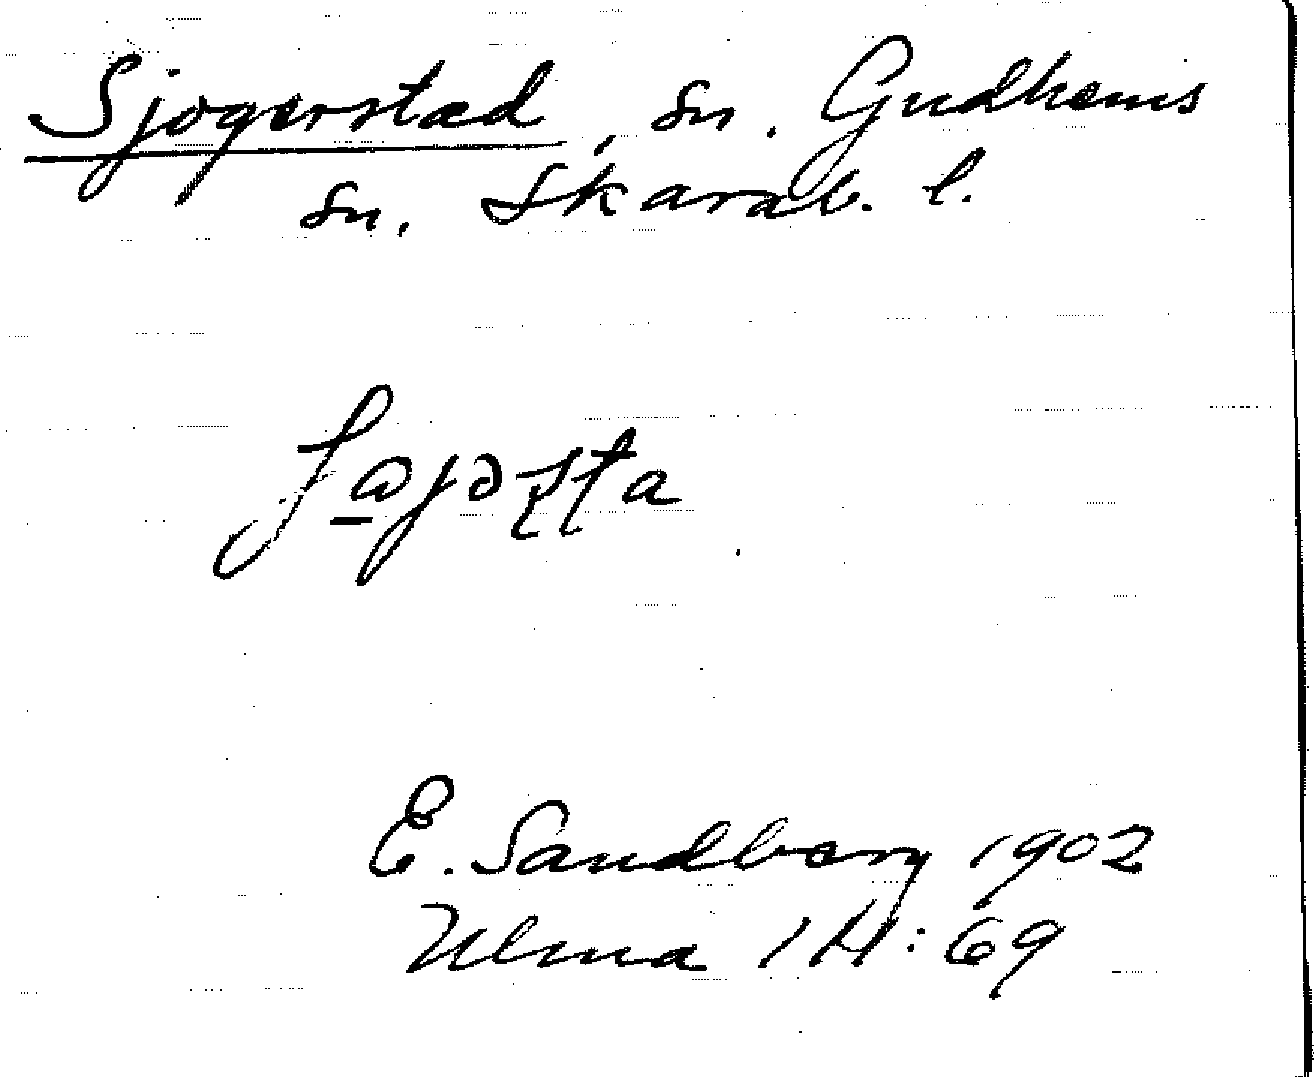 Sjogerstad, sn. Gudhems
sn. Skarab. l.
E. Sandberg 1902
Ulma 1H: 69